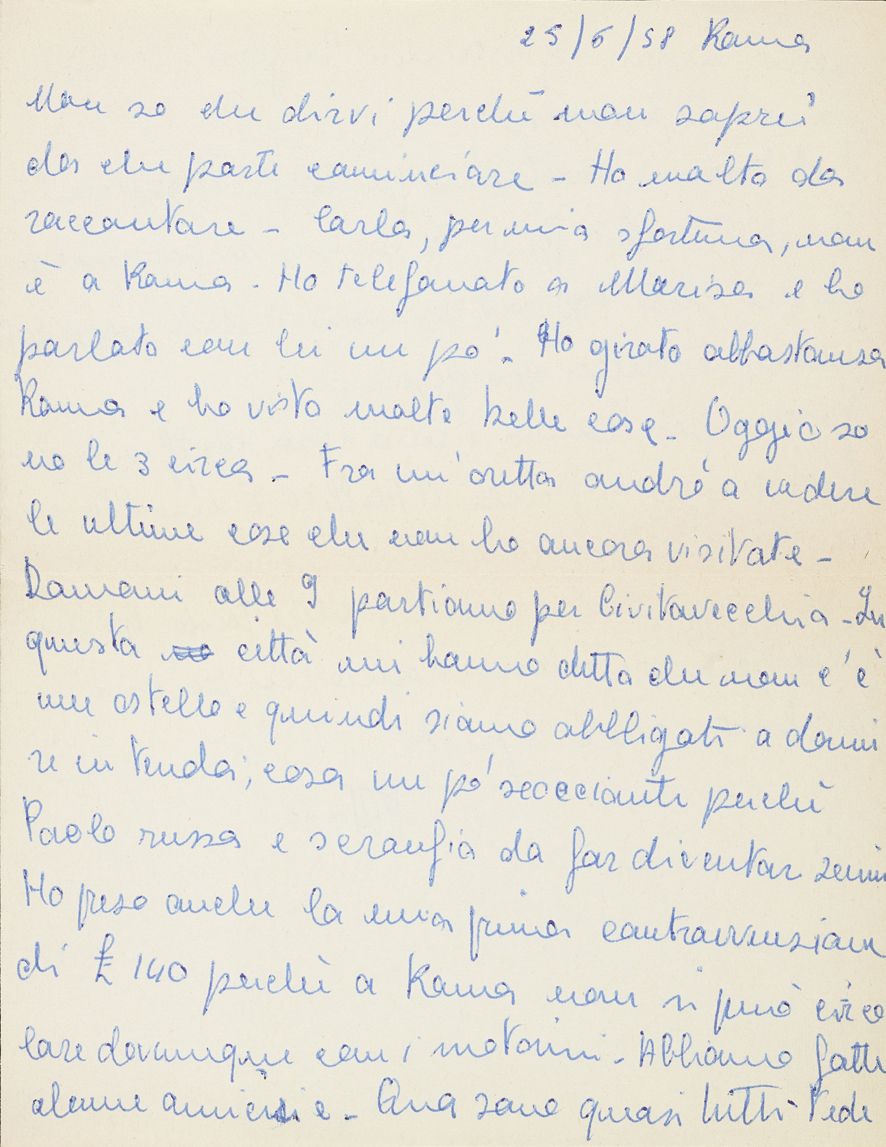 25/6/58 Roma
Non so che dirvi perchè non saprei
da che parte cominciare - Ho molto da
raccontare - Carla, per mia sfortuna, non
è a Roma - Ho telefonato a Marisa e ho
parlato con lei un po' - Ho girato abbastanza
Roma e ho visto molte belle cose - Oggi so
no le 3 circa - Fra un'oretta andrò a vedere
le ultime cose che non ho ancora visitate -
Domani alle 9 partiamo per Civitavecchia - In
questa città mi hanno detto che non c'è
un ostello e quindi siamo obbligati a dormi
re in tenda; cosa un pò scocciante perchè
Paolo russa e da far diventar scemi
Ho preso anche la mia prima contravvenzione
di £ 140 perchè a Roma non si può circo
lare dovunque con i motorini - Abbiamo fatto
alcune amicizie - Ora sono quasi tutti